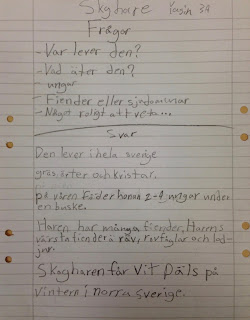 Skghare
Yasin 3A
Frågor
- Var lever den?
- Vad äter den?
- ungar
- Fiender eller sjudommar
- Något roligt att veta...
Svar
Den lever i hela sverige
gräs, örter och kvistar.
på våren föder honan 2-4 ungar under
en buske.
Haren har många fiender, Harens
värsta fiender ä räv, rovfåglar och lod-
jur.
Skogharen får vit päls på
vintern i norra sverige.